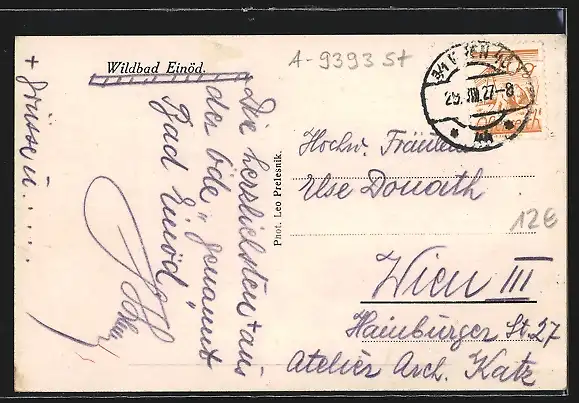 A-9393 St
Wildbad Einöd.
25. VIII. 27-8
Die herzlichsten + aus
der Öde „ genannt
Bad Einöd "
+ Grüsse u.....
Phot. Leo Prelesnik.
Hochw. Fräulein
Else Donath
12€
Wien III
Hainburger St. 27
Atelier Arch. Katz